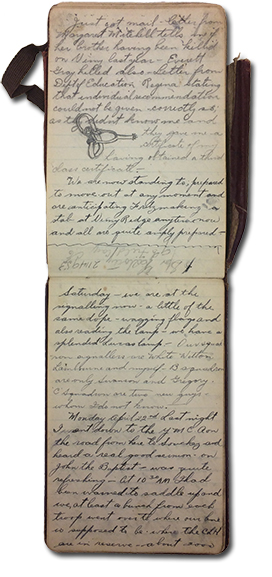 Just got mail - letter from
Margaret Mitchell tells me of
her brother having been killed
on Vimy last year - Everett
Gray killed also - Letter from
Dept of Education Regina stating
that window recommendation
could not be given correctly as
as they didn't know me and
they gave me a
certificate of my
having obtained a third
class certificate -
We are now standing to, prepared
to move out at any moment and
are anticipating Fritz making a
stab at Vimy Ridge anytime now
and all are quite amply prepared -
Saturday - we are at the
signalling now - a little of the
same dope - wagging flags and
also reading the lamp - we have a
splendid lucas lamp - Our squad
now signallers are White, Wilton,
and myself - B squadron
are only Swanson and Gregory -
C Squadron are two new guys -
whom I do not know.
Monday April 22nd last night
I went down to the Y M C A on
the road from here to Souchez and
heard a real good sermon - on
John the Baptist - was quite
refreshing - At 10 30 AM I had
been warned to saddle up and
we, at least a bunch from each
troop went over to where our line
is supposed to be where the CLH
are in reserve - about 2000